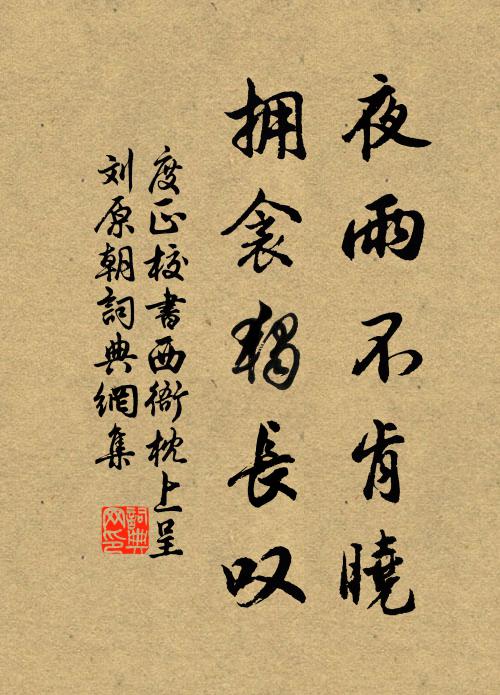 夜雨不肯曉
拥衾獨長叹
度正校書西衙枕上呈
刘原朝詞典網集
詞典網印